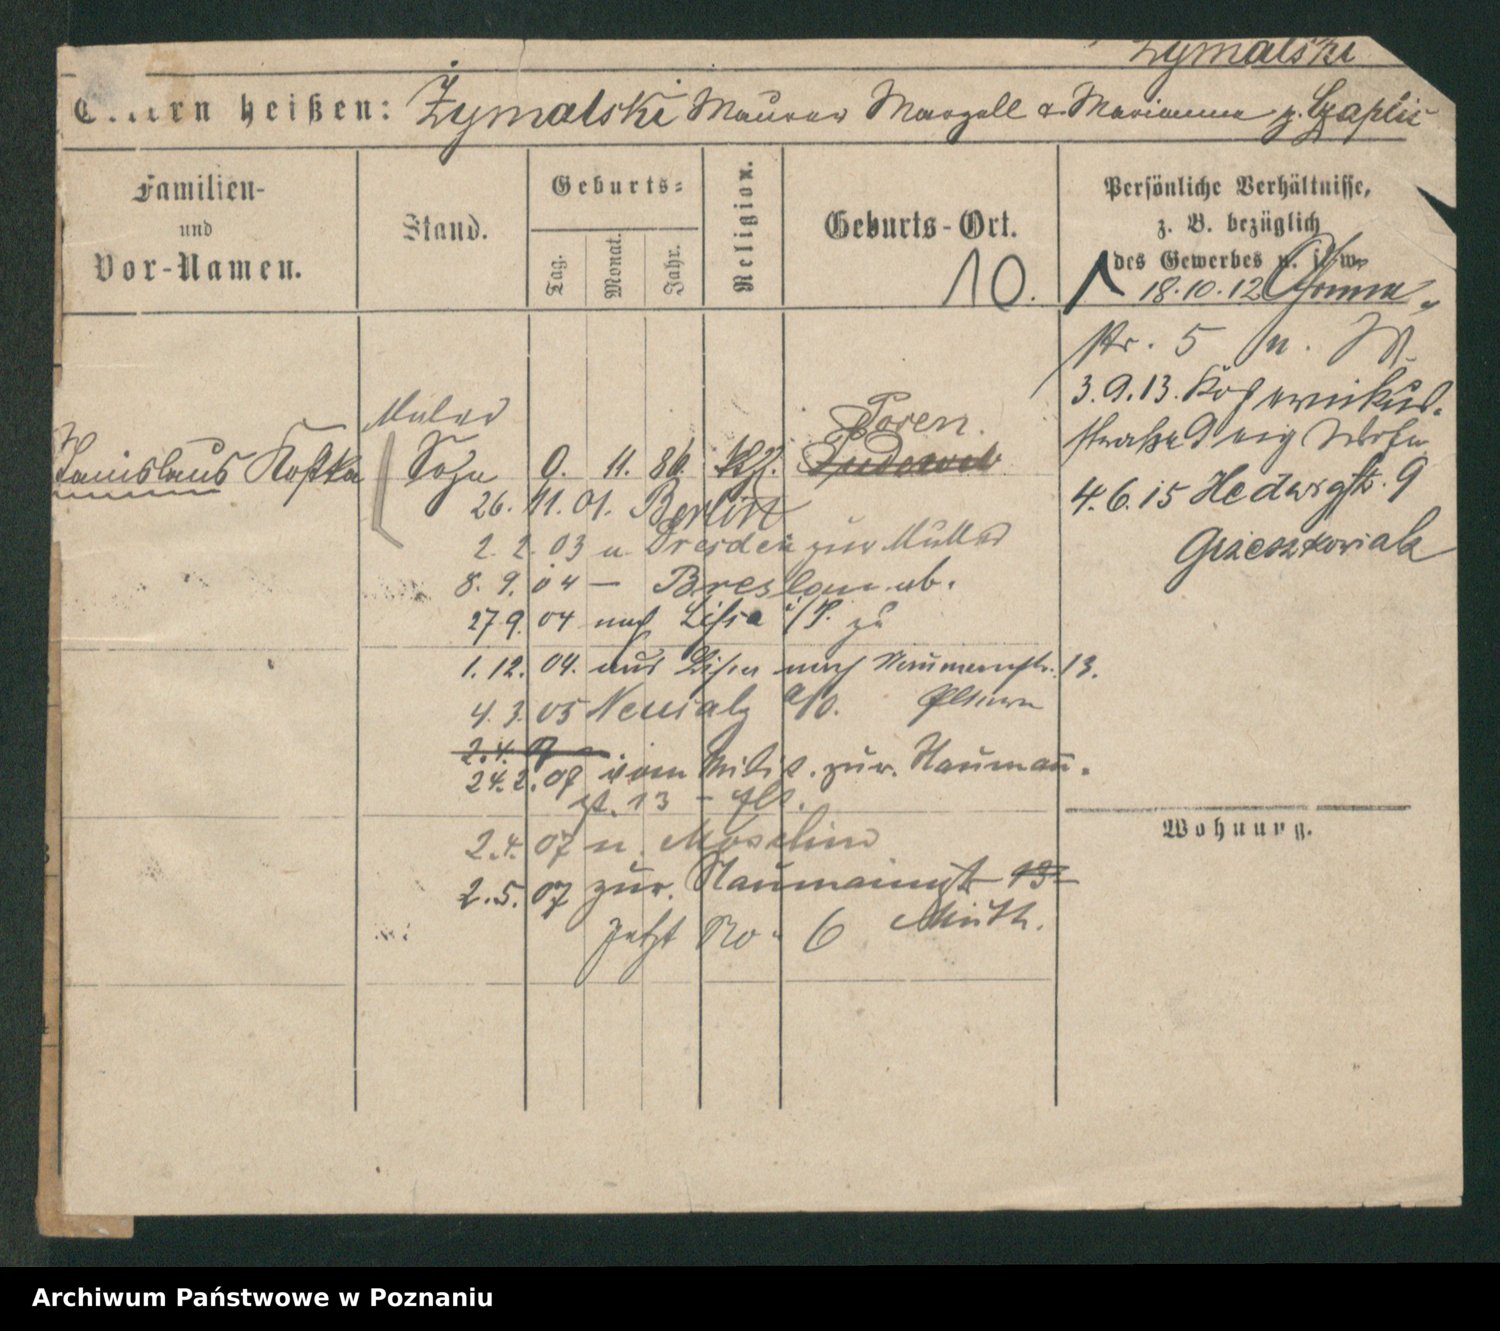 Żymalski
Eltern heißen: Żymalski Maurer Marzell & Marianna g. Czaplic
Familien-
und
Vor-Namen.
Stand.
Geburts-
Tag.
Monat.
Jahr.
Religion.
Geburts-Ort.
Persönliche Verhältnisse,
z. B. bezüglich
des Gewerbes u. s. w.
10.
18.10.12
str. 5
3.9.13.
4.6.15 Hedwigstr. 9
Grzeszkowiak
Maler
Stanislaus Kostka Sohn 9. 11. 86 kth. Posen.
26. 11. 01. Berlin
2. 2. 03 n. Dresden zur Mutter
8. 9. 04 — Breslau ab.
27 9. 04 nach Lissa i/P.
1. 12. 04. aus Lissa nach Naumannstr. 13.
4. 3. 05 Neusalz a/O. Eltern
2.4.
24. 2. 07 vom Milit. zur. Nauman.
st. 13
2.4. 07 n. Moschin
2.5. 07 zur. Naumannst 13
jetzt No. 6 Mutt.
Wohnung.
Archiwum Państwowe w Poznaniu